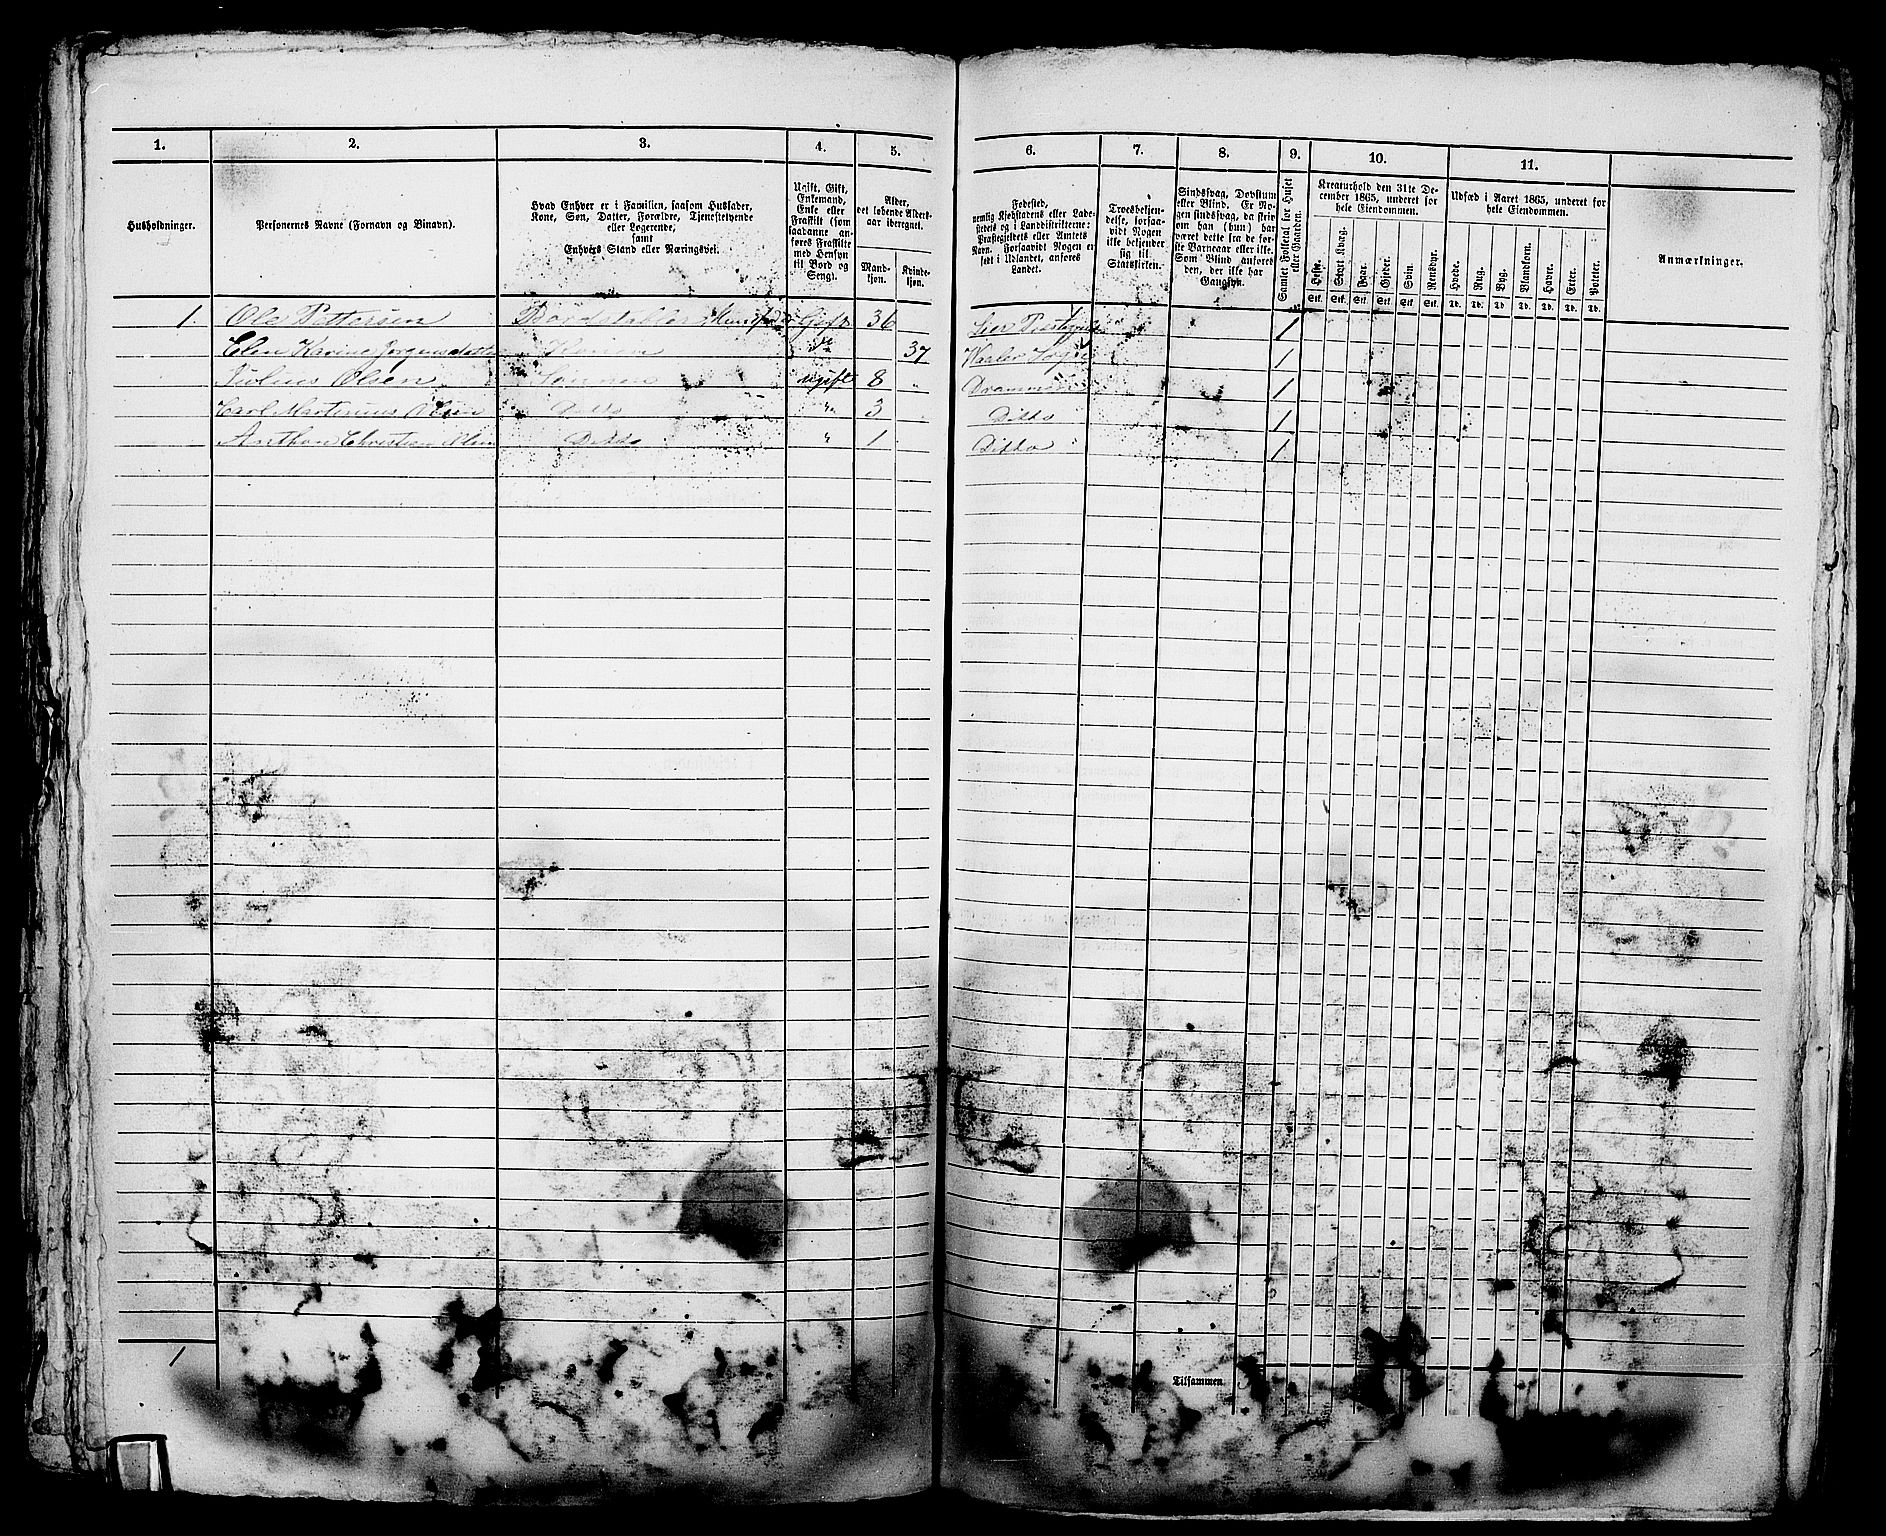 1. 2. 3. 4. 5. 6. 7. 8. 9. 10. 11.
Husholdninger.
Personernes Navne (Fornavn og Binavn).
Hvad Enhver er i Familien, saasom Husfader,
Kone, Søn, Datter, Forældre, Tjenestetyende
eller Logerende,
samt
Enhvers Stand eller Næringsvei.
Ugift, Gift,
Enkemand,
Enke eller
Fraskilt (som
saadanne an-
føres Fraskilte
med Hensyn
til Bord og
Seng).
Alder,
det løbende Alders-
aar iberegnet.
Mand-
kjøn.
Kvinde-
kjøn.
Fødested,
nemlig Kjøbstadens eller Lade-
stedets og i Landdistrikterne:
Præstegjeldets eller Amtets
Navn. Forsaavidt Nogen er
født i Udlandet, anføres
Landet.
Troesbekjen-
delse, forsaa-
vidt Nogen
ikke bekjender
sig til
Statskirken.
Sindssvag, Døvstum
eller Blind. Er No-
gen sindssvag, da skriv
om han (hun) har
været dette fra de før-
ste Barneaar eller ikke.
Som Blind anføres
den, der ikke har
Gangsyn.
Samlet Folketal for Huset
eller Gaarden.
Kreaturhold den 31te De-
cember 1865, underet for
hele Eiendommen.
Heste. Stort Kvæg. Faar. Gjeder. Svin. Rensdyr.
Stk. Stk. Stk. Stk. Stk. Stk.
Udsæd i Aaret 1865, underet for
hele Eiendommen.
Hvede. Rug. Byg. Blandkorn. Havre. Erter. Poteter.
Td. Td. Td. Td. Td. Td. Td.
Anmærkninger.
1. Ole Pettersen Bordstabler Gift 36 Lier 1
Elen Karine Jørgensdatter Konen do 37 1
Julius Olsen Sønnen ugift 8 " Drammen 1
Carl Martinius Olsen Ditto " 3 Ditto 1
Anthon Christian Olsen Ditto " 1 Ditto 1
1
Tilsammen.